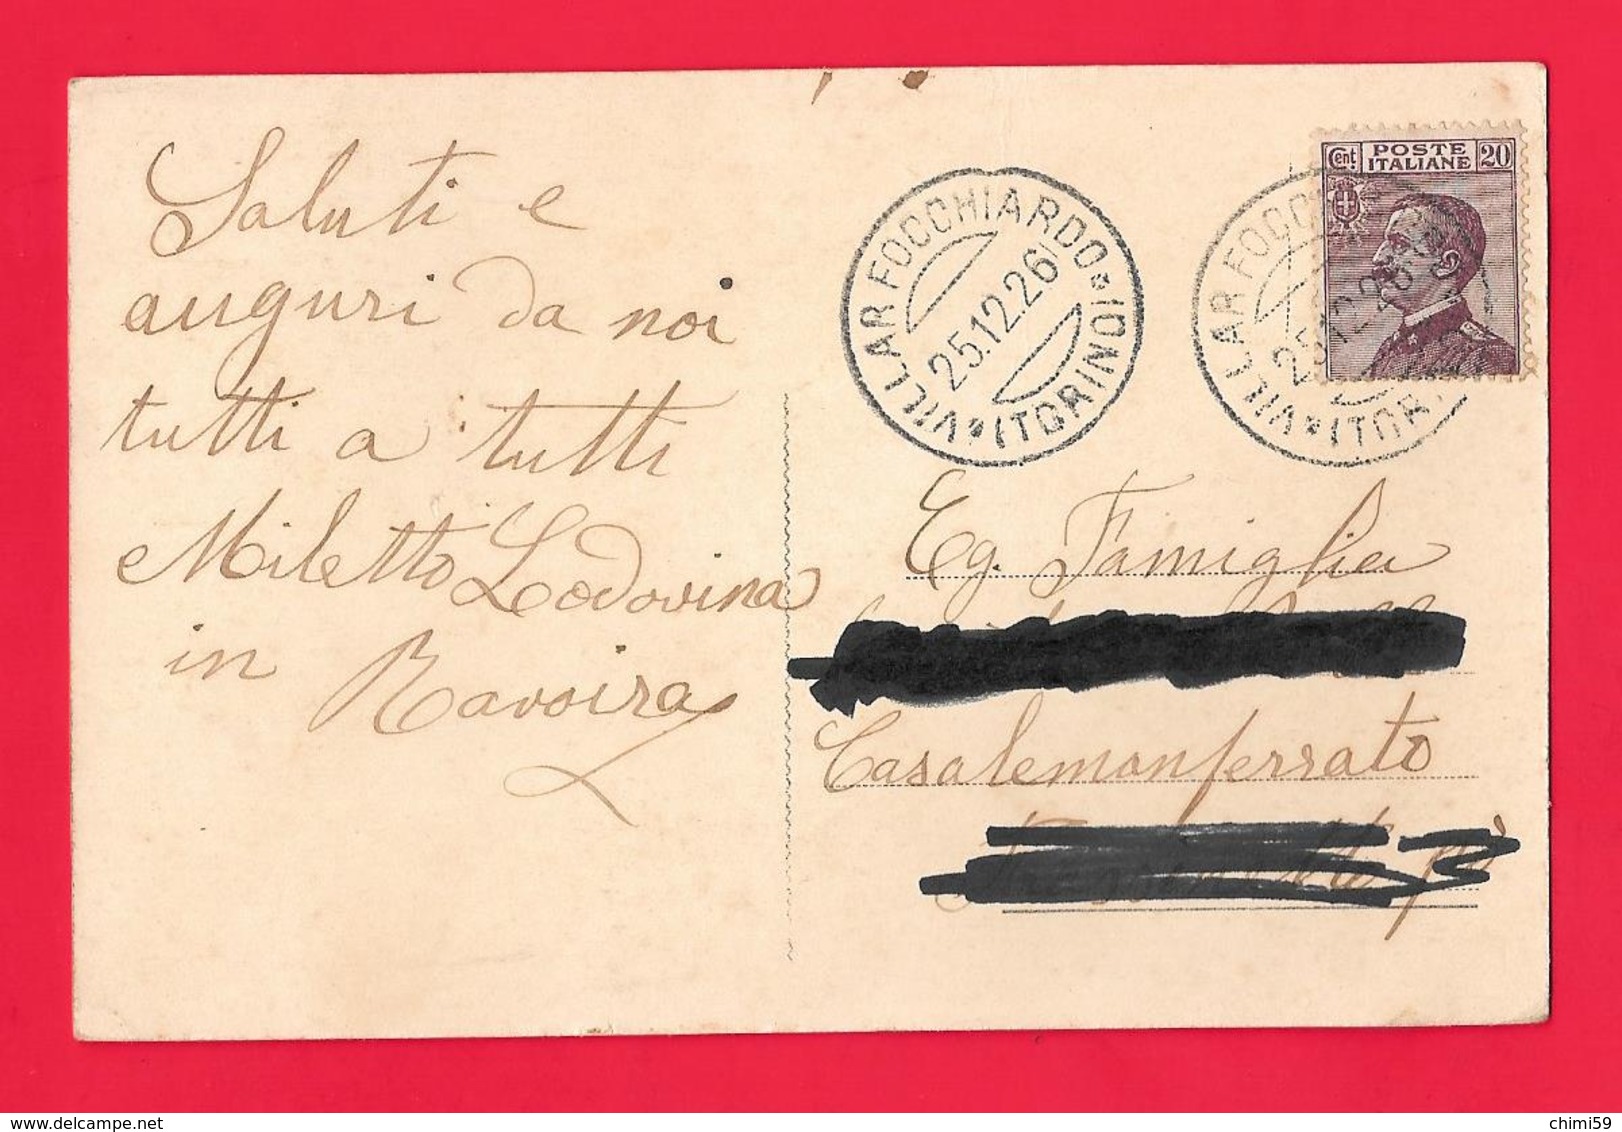 Saluti e
auguri da noi
tutti a tutti
Miletto Lodovina
in Ravoira
VILLAR FOCCHIARDO * (TORINO) *
25.12.26
VILLAR FOCC
(TORI
25.12.26
Cent. POSTE ITALIANE 20
Eg. Famiglia
Casalemonferrato
© chimi59